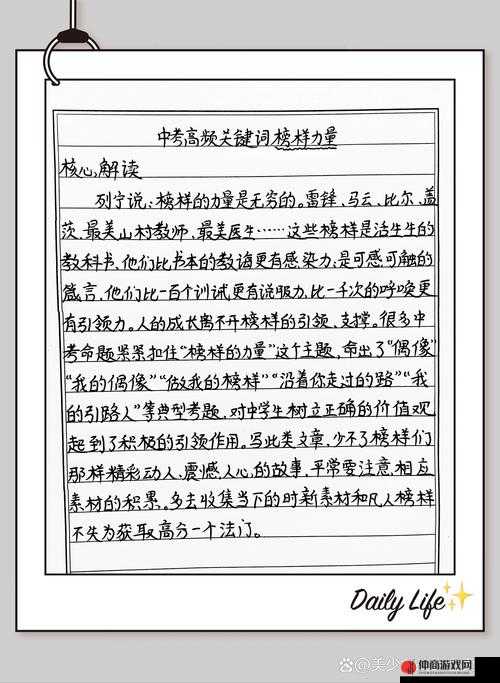 中考高频关键词榜样力量
核心解读
列宁说:榜样的力量是无穷的。雷锋、马云、比尔、盖
茨、最美山村教师、最美医生……这些榜样是活生生的
教科书,他们比书本的教诲更有感染力,是可感可触的
箴言,他们比一百个训试更有说服力,比一千次的呼唤更
有引领力。人的成长离不开榜样的引领、支撑。很多中
考命题紧紧扣住“榜样的力量”这个主题,命出了“偶像”
“我的偶像”“做我的榜样”“沿着你走过的路”“我
的引路人”等典型考题,对中学生树立正确的价值观
起到了积极的引领作用。写此类文章,少不了榜样们
那样精彩动人、震憾人心的故事,平常要注意相应
素材的积累。多去收集当下的时新素材和凡人榜样
不失为获取高分一个法门。
Daily Life
@美少
仲商游戏网